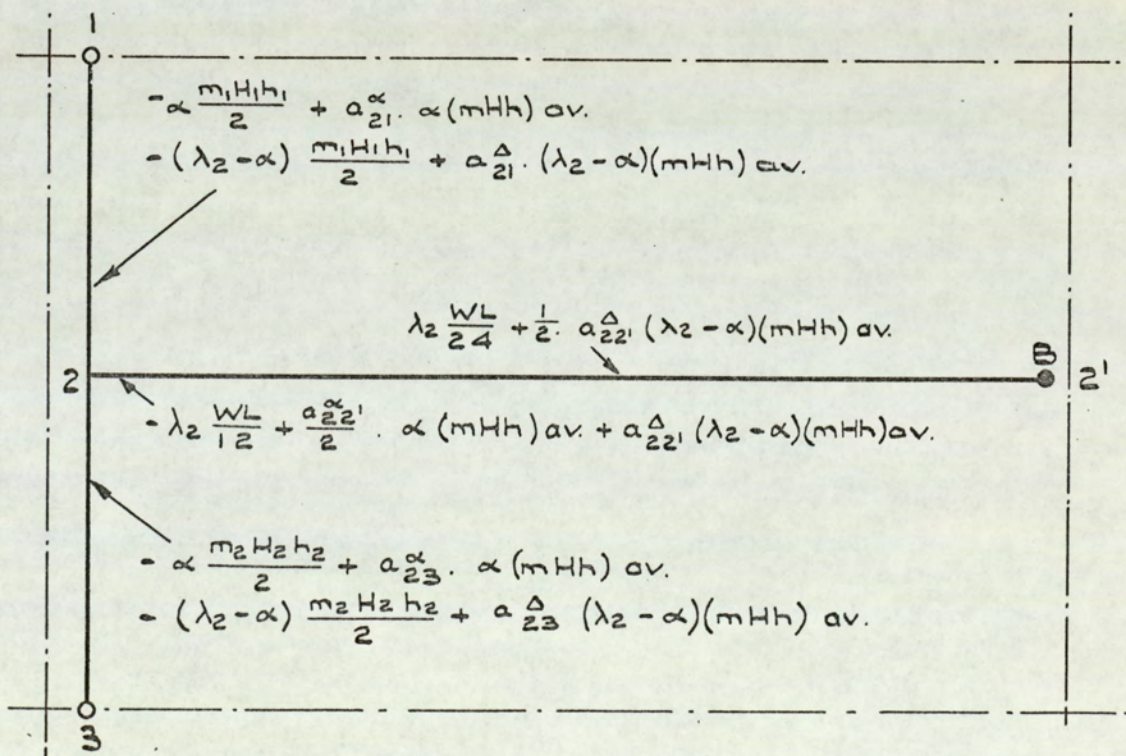 1
- α m₁H₁h₁/2 + a₂₁^α . α(mHh) av.
- (λ₂-α) m₁H₁h₁/2 + a₂₁^Δ . (λ₂-α)(mHh) av.
λ₂ WL/24 + 1/2 . a₂₂'^Δ (λ₂-α)(mHh) av.
2
2'
- λ₂ WL/12 + a₂₂'^α/2 . α (mHh) av. + a₂₂'^Δ (λ₂-α)(mHh) av.
- α m₂H₂h₂/2 + a₂₃^α . α (mHh) av.
- (λ₂-α) m₂H₂h₂/2 + a₂₃^Δ (λ₂-α)(mHh) av.
3